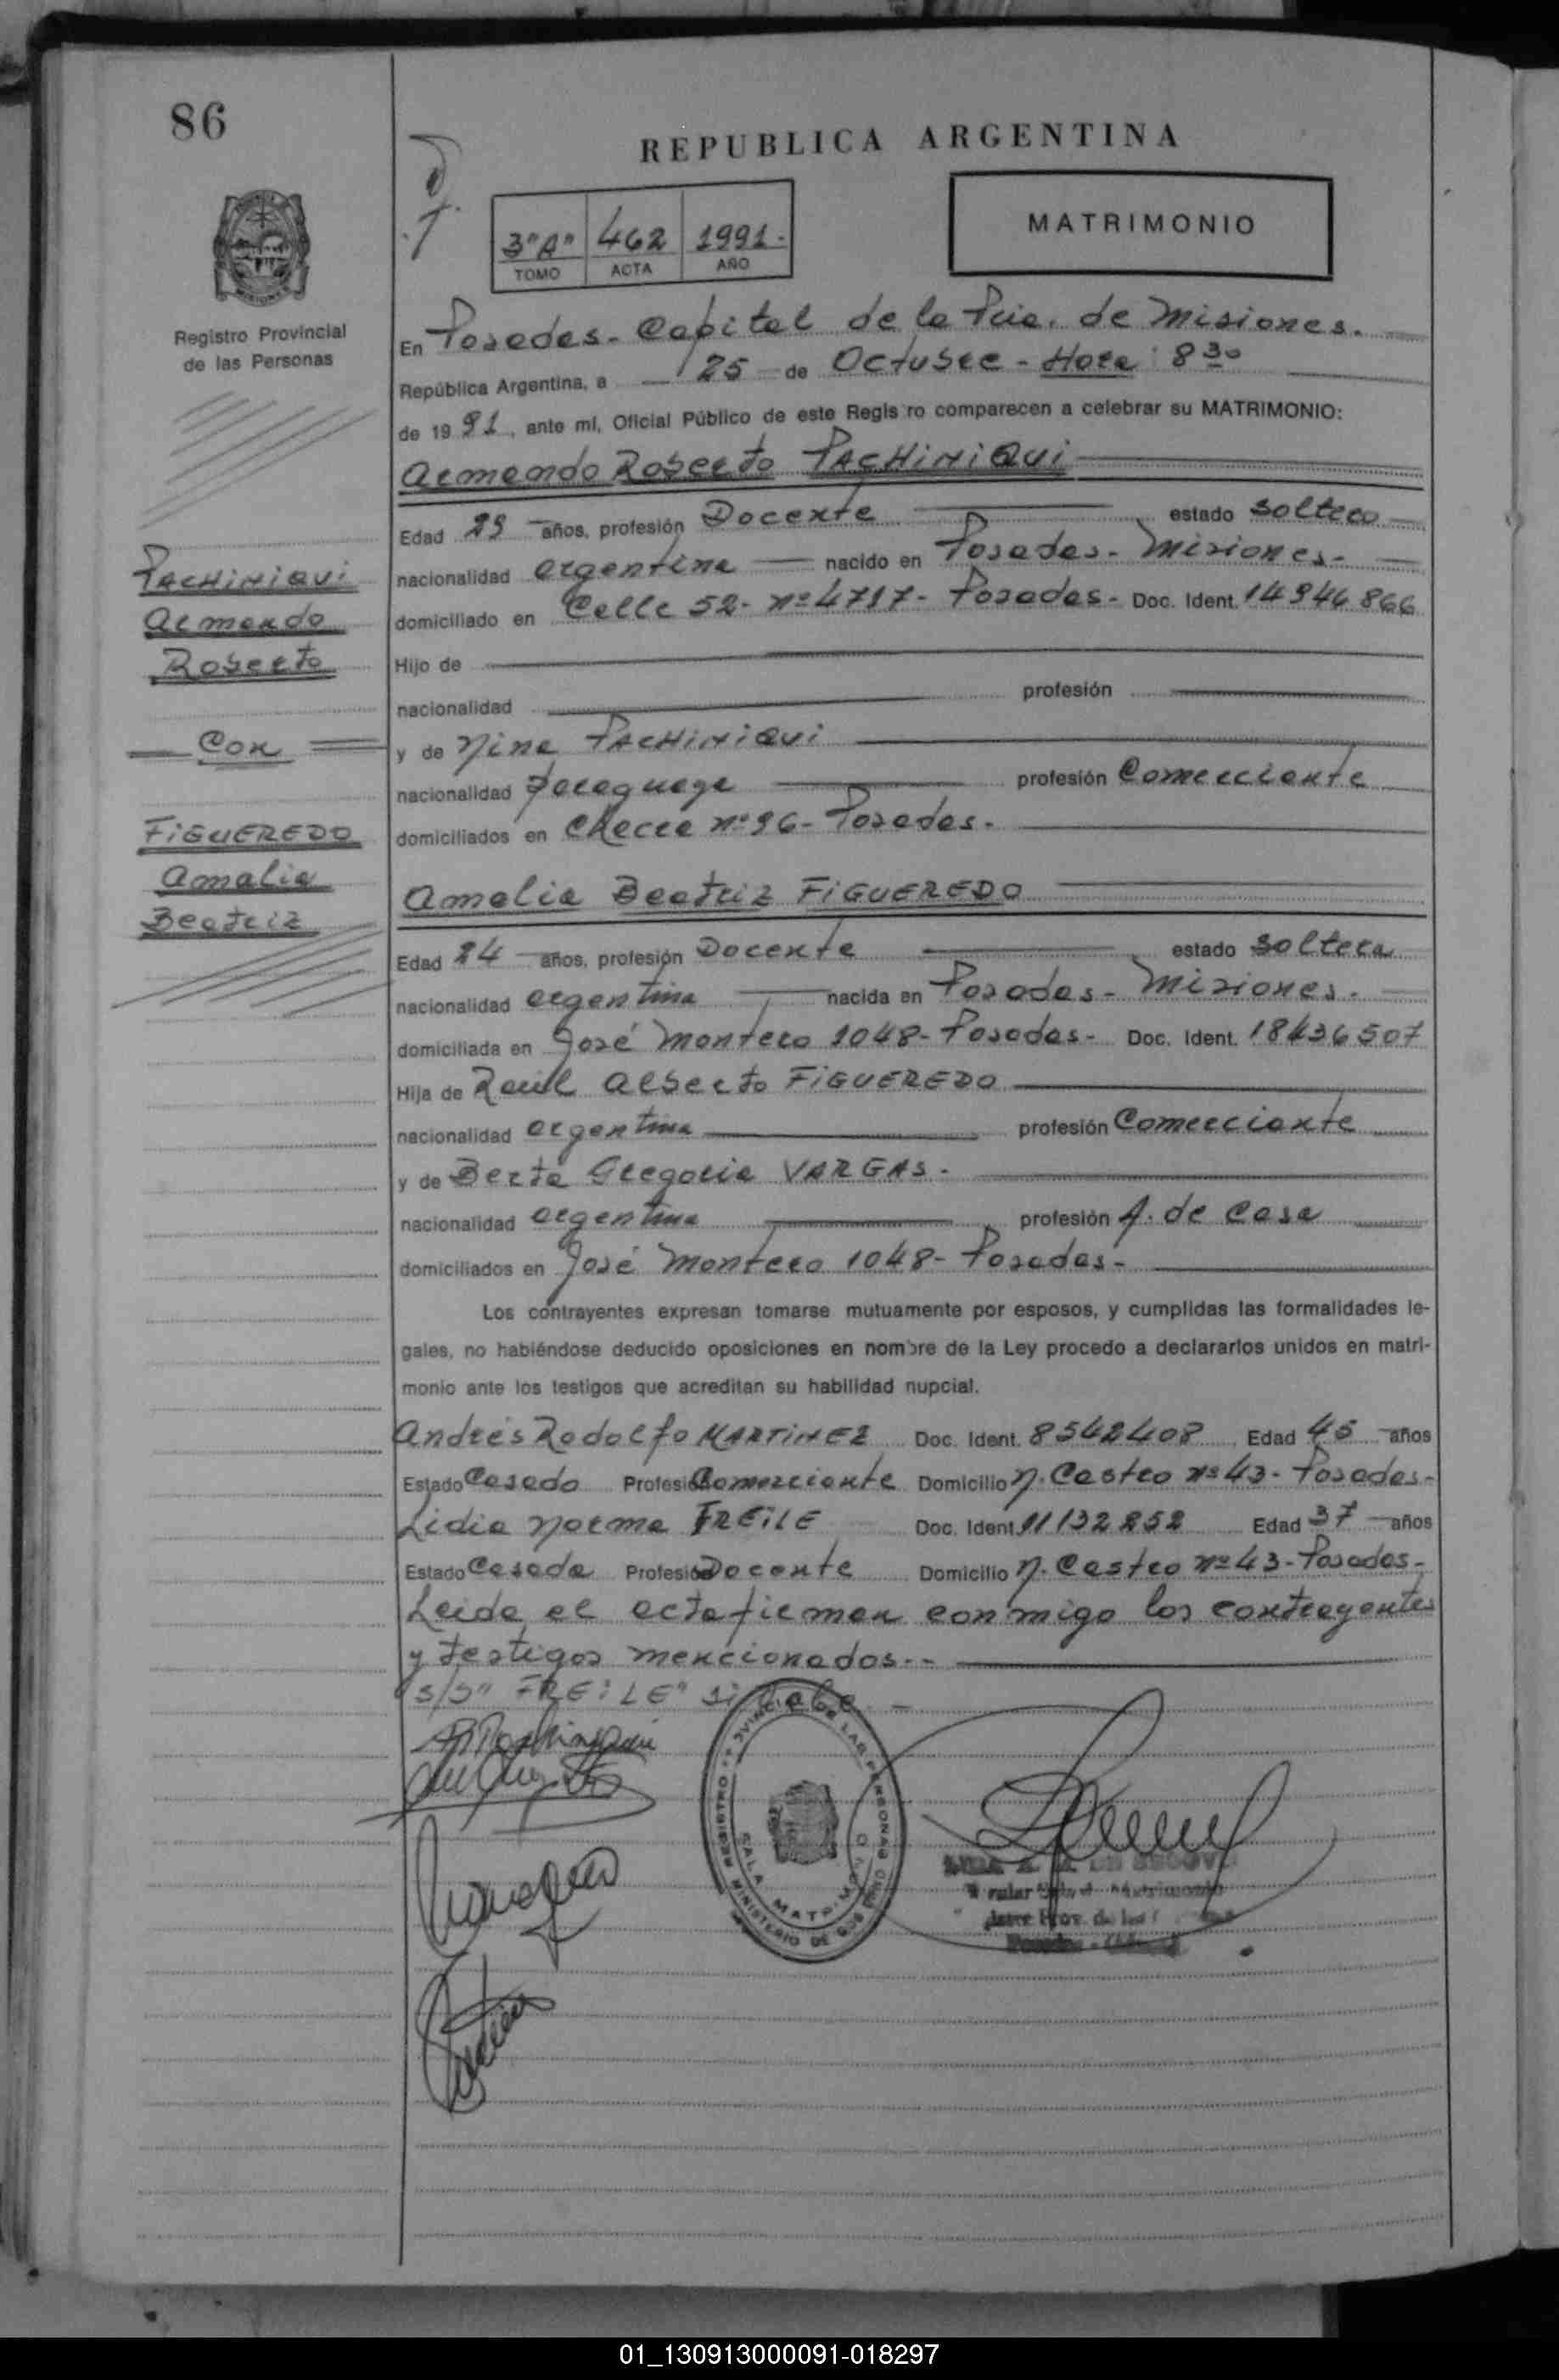 86
REPUBLICA ARGENTINA
3"A" 462 1991.-
TOMO ACTA AÑO
MATRIMONIO
MISIONES
Registro Provincial
de las Personas
En Posadas - Capital de la Pcia. de Misiones.
República Argentina, a 25 de Octubre - Hora: 8 30
de 19 91, ante mí, Oficial Público de este Regis ro comparecen a celebrar su MATRIMONIO:
Armando Roberto PACHINIQUI
Edad 29 años, profesión Docente estado soltero
nacionalidad argentina nacido en Posadas - Misiones.-
domiciliado en Calle 52 - Nº 4717 - Posadas - Doc. Ident. 14946866
Hijo de
nacionalidad profesión
y de Nina PACHINIQUI
nacionalidad paraguaya profesión Comerciante
domiciliados en Nº 96 - Posadas.
PACHINIQUI
Armando
Roberto
Con
FIGUEREDO
Amalia
Beatriz
Amalia Beatriz FIGUEREDO
Edad 24 años, profesión Docente estado soltera
nacionalidad argentina nacida en Posadas - Misiones.
domiciliada en José Montero 1048 - Posadas - Doc. Ident. 18436507
Hija de Raúl Alberto FIGUEREDO
nacionalidad argentina profesión Comerciante
y de Berta Gregoria VARGAS.
nacionalidad argentina profesión A. de Casa
domiciliados en José Montero 1048 - Posadas -
Los contrayentes expresan tomarse mutuamente por esposos, y cumplidas las formalidades le-
gales, no habiéndose deducido oposiciones en nombre de la Ley procedo a declararlos unidos en matri-
monio ante los testigos que acreditan su habilidad nupcial.
Andrés Rodolfo MARTINEZ Doc. Ident. 8542408 Edad 45 años
Estado Casado Profesión Comerciante Domicilio N. Castro Nº 43 - Posadas -
Lidia Norma FREILE Doc. Ident 11132252 Edad 37 años
Estado Casada Profesión Docente Domicilio N. Castro Nº 43 - Posadas -
Leida el acta firman conmigo los contrayentes
y testigos mencionados.--
s/s" FREILE" si vale. -
REGISTRO PROVINCIAL DE LAS PERSONAS
SALA MATRIMONIO
MINISTERIO DE GOBIERNO
01_130913000091-018297